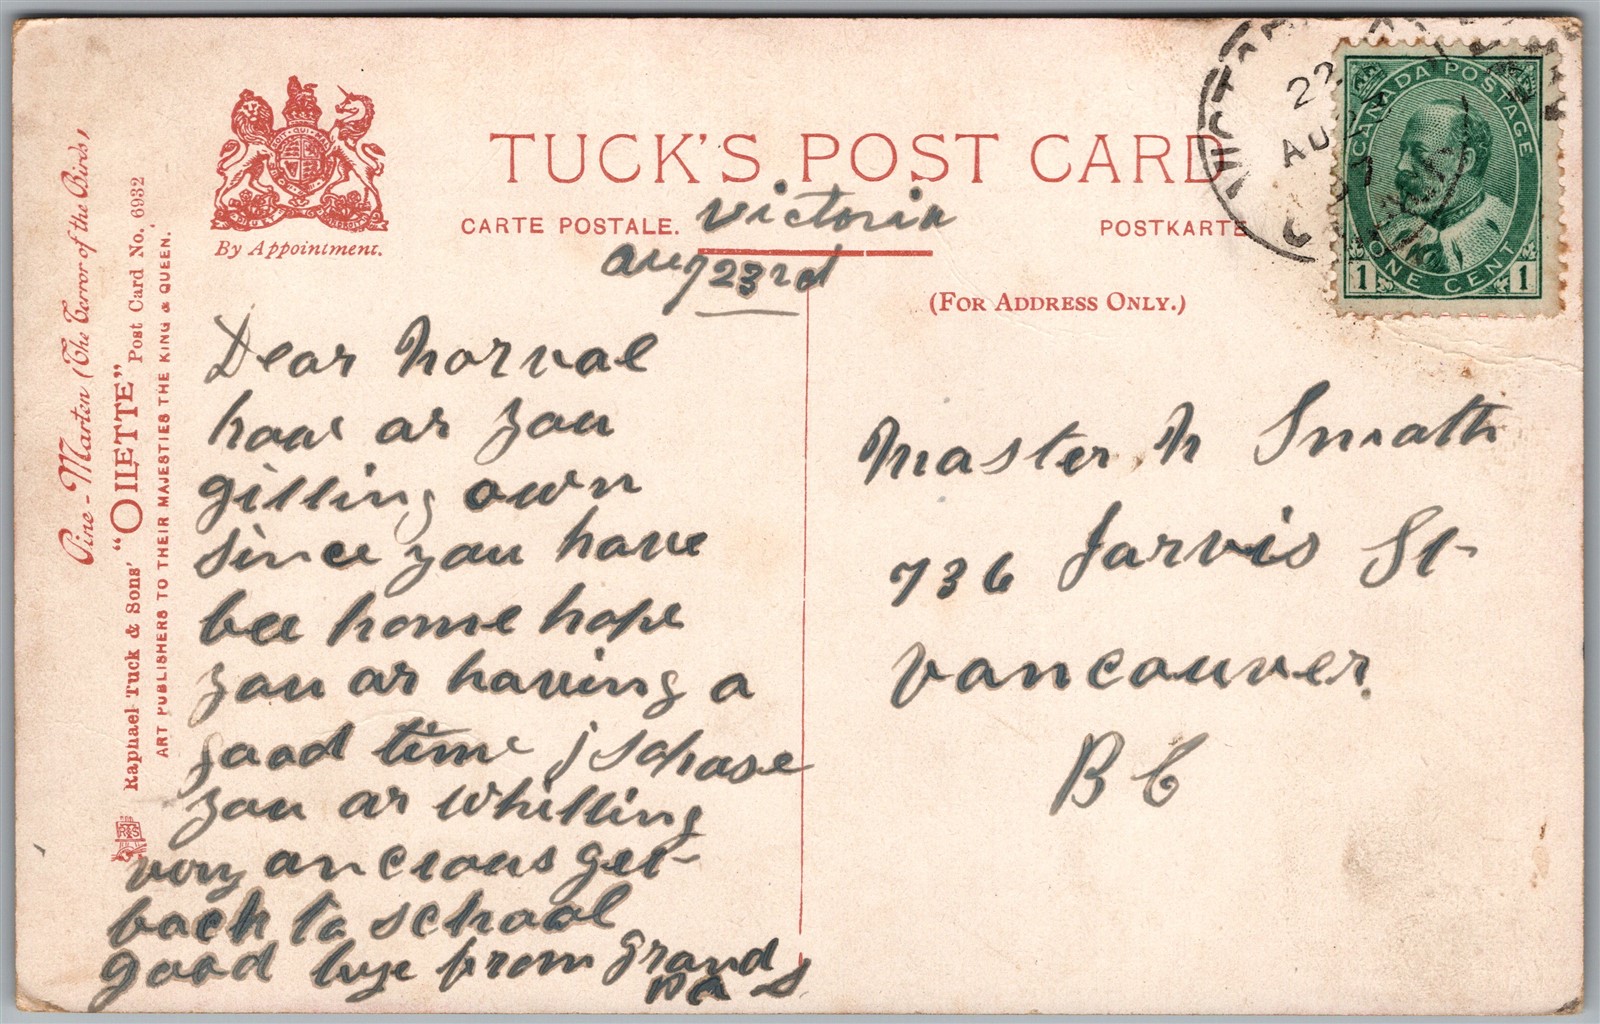 Pine - Marten (The Terror of the Birds)
Raphael Tuck & Sons' "OILETTE" Post Card No. 6932
ART PUBLISHERS TO THEIR MAJESTIES THE KING & QUEEN.
By Appointment.
TUCK'S POST CARD
CARTE POSTALE.
POSTKARTE
(FOR ADDRESS ONLY.)
22
AU
07
CANADA POSTAGE
ONE CENT
1 1
Victoria
aug 23rd
Dear Norval
how ar you
gitting own
since you have
bee home hope
you ar having a
good time j schose
you ar whilling
very ancious get
back to school
good bye from grand
pa S
Master N Smath
736 Jarvis St
Vancouver
B C